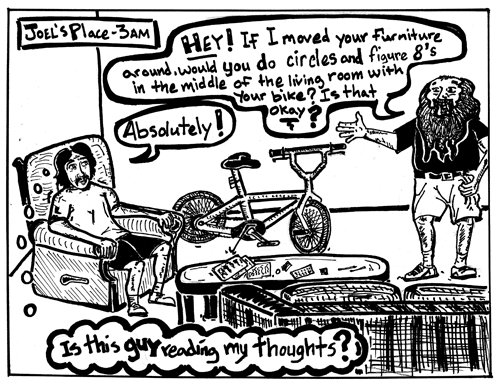 JOEL'S PLACE - 3AM
HEY! IF I moved your furniture
around. would you do circles and figure 8's
in the middle of the living room with
your bike? Is that
okay?
Absolutely!
Is this guy reading my thoughts?